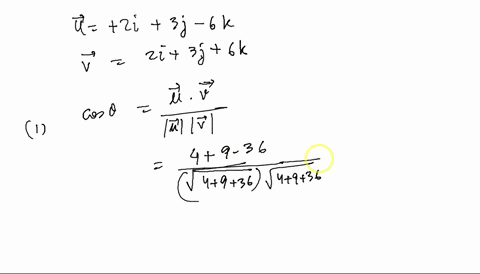 u⃗ = +2i + 3j - 6k
v⃗ = 2i + 3j + 6k
(1) cosθ = u⃗ · v⃗ / |u⃗| |v⃗|
= 4 + 9 - 36 / (√4+9+36) √4+9+36